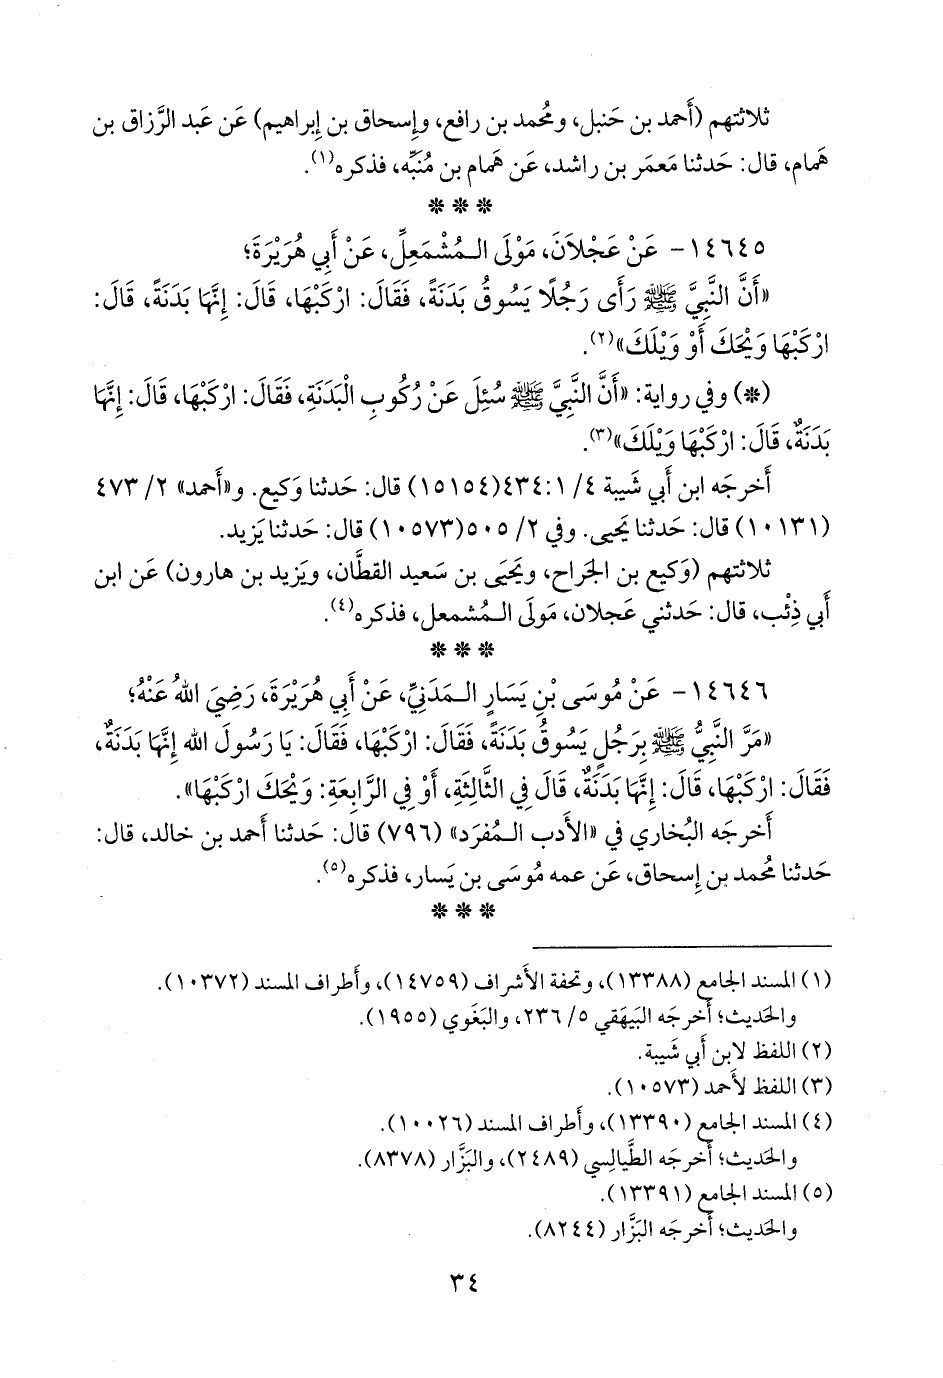 ثلاثتهم (أَحمد بن حَنبل، ومُحمد بن رافع، وإِسحاق بن إِبراهيم) عَن عَبد الرَّزاق بن
هَمام، قال: حَدثنا مَعمَر بن راشد، عَن هَمام بن مُنَبِّه، فذكره(١).
* * *
١٤٦٤٥- عَنْ عَجْلاَنَ، مَوْلَى الـمُشْمَعِلِّ، عَنْ أَبِي هُرَيْرَةَ؛
«أَنَّ النَّبِيَّ ﷺ رَأَى رَجُلًا يَسُوقُ بَدَنَةً، فَقَالَ: ارْكَبْهَا، قَالَ: إِنَّهَا بَدَنَةٌ، قَالَ:
ارْكَبْهَا وَيْحَكَ أَوْ وَيْلَكَ»(٢).
(*) وفي رواية: «أَنَّ النَّبِيَّ ﷺ سُئِلَ عَنْ رُكُوبِ الْبَدَنَةِ، فَقَالَ: ارْكَبْهَا، قَالَ: إِنَّهَا
بَدَنَةٌ، قَالَ: ارْكَبْهَا وَيْلَكَ»(٣).
أَخرجَه ابن أَبي شَيبة ٤/ ١:٤٣٤(١٥١٥٤) قال: حَدثنا وَكيع. و«أَحمد» ٢/ ٤٧٣
(١٠١٣١) قال: حَدثنا يَحيى. وفي ٢/ ٥٠٥(١٠٥٧٣) قال: حَدثنا يَزيد.
ثلاثتهم (وَكيع بن الجَراح، ويَحيَى بن سَعيد القطَّان، ويَزيد بن هارون) عَن ابن
أَبي ذِئْب، قال: حَدثني عَجلان، مَولَى الـمُشمعل، فذكره(٤).
* * *
١٤٦٤٦- عَنْ مُوسَى بْنِ يَسَارٍ الـمَدَنِيِّ، عَنْ أَبِي هُرَيْرَةَ، رَضِيَ اللهُ عَنْهُ؛
«مَرَّ النَّبِيُّ ﷺ بِرَجُلٍ يَسُوقُ بَدَنَةً، فَقَالَ: ارْكَبْهَا، فَقَالَ: يَا رَسُولَ الله إِنَّهَا بَدَنَةٌ،
فَقَالَ: ارْكَبْهَا، قَالَ: إِنَّهَا بَدَنَةٌ، قَالَ فِي الثَّالِثَةِ، أَوْ فِي الرَّابِعَةِ: وَيْحَكَ ارْكَبْهَا».
أَخرجَه البُخاري في «الأَدب الـمُفرَد» (٧٩٦) قال: حَدثنا أَحمد بن خالد، قال:
حَدثنا مُحمد بن إِسحاق، عَن عمه مُوسَى بن يَسار، فذكره(٥).
* * *
(١) المسند الجامع (١٣٣٨٨)، وتحفة الأَشراف (١٤٧٥٩)، وأَطراف المسند (١٠٣٧٢).
والحَديث؛ أَخرجَه البَيهَقي ٥/ ٢٣٦، والبَغَوي (١٩٥٥).
(٢) اللفظ لابن أَبي شَيبة.
(٣) اللفظ لأَحمد (١٠٥٧٣).
(٤) المسند الجامع (١٣٣٩٠)، وأَطراف المسند (١٠٠٢٦).
والحَديث؛ أَخرجَه الطَّيالِسي (٢٤٨٩)، والبَزَّار (٨٣٧٨).
(٥) المسند الجامع (١٣٣٩١).
والحَديث؛ أَخرجَه البَزَّار (٨٢٤٤).
٣٤